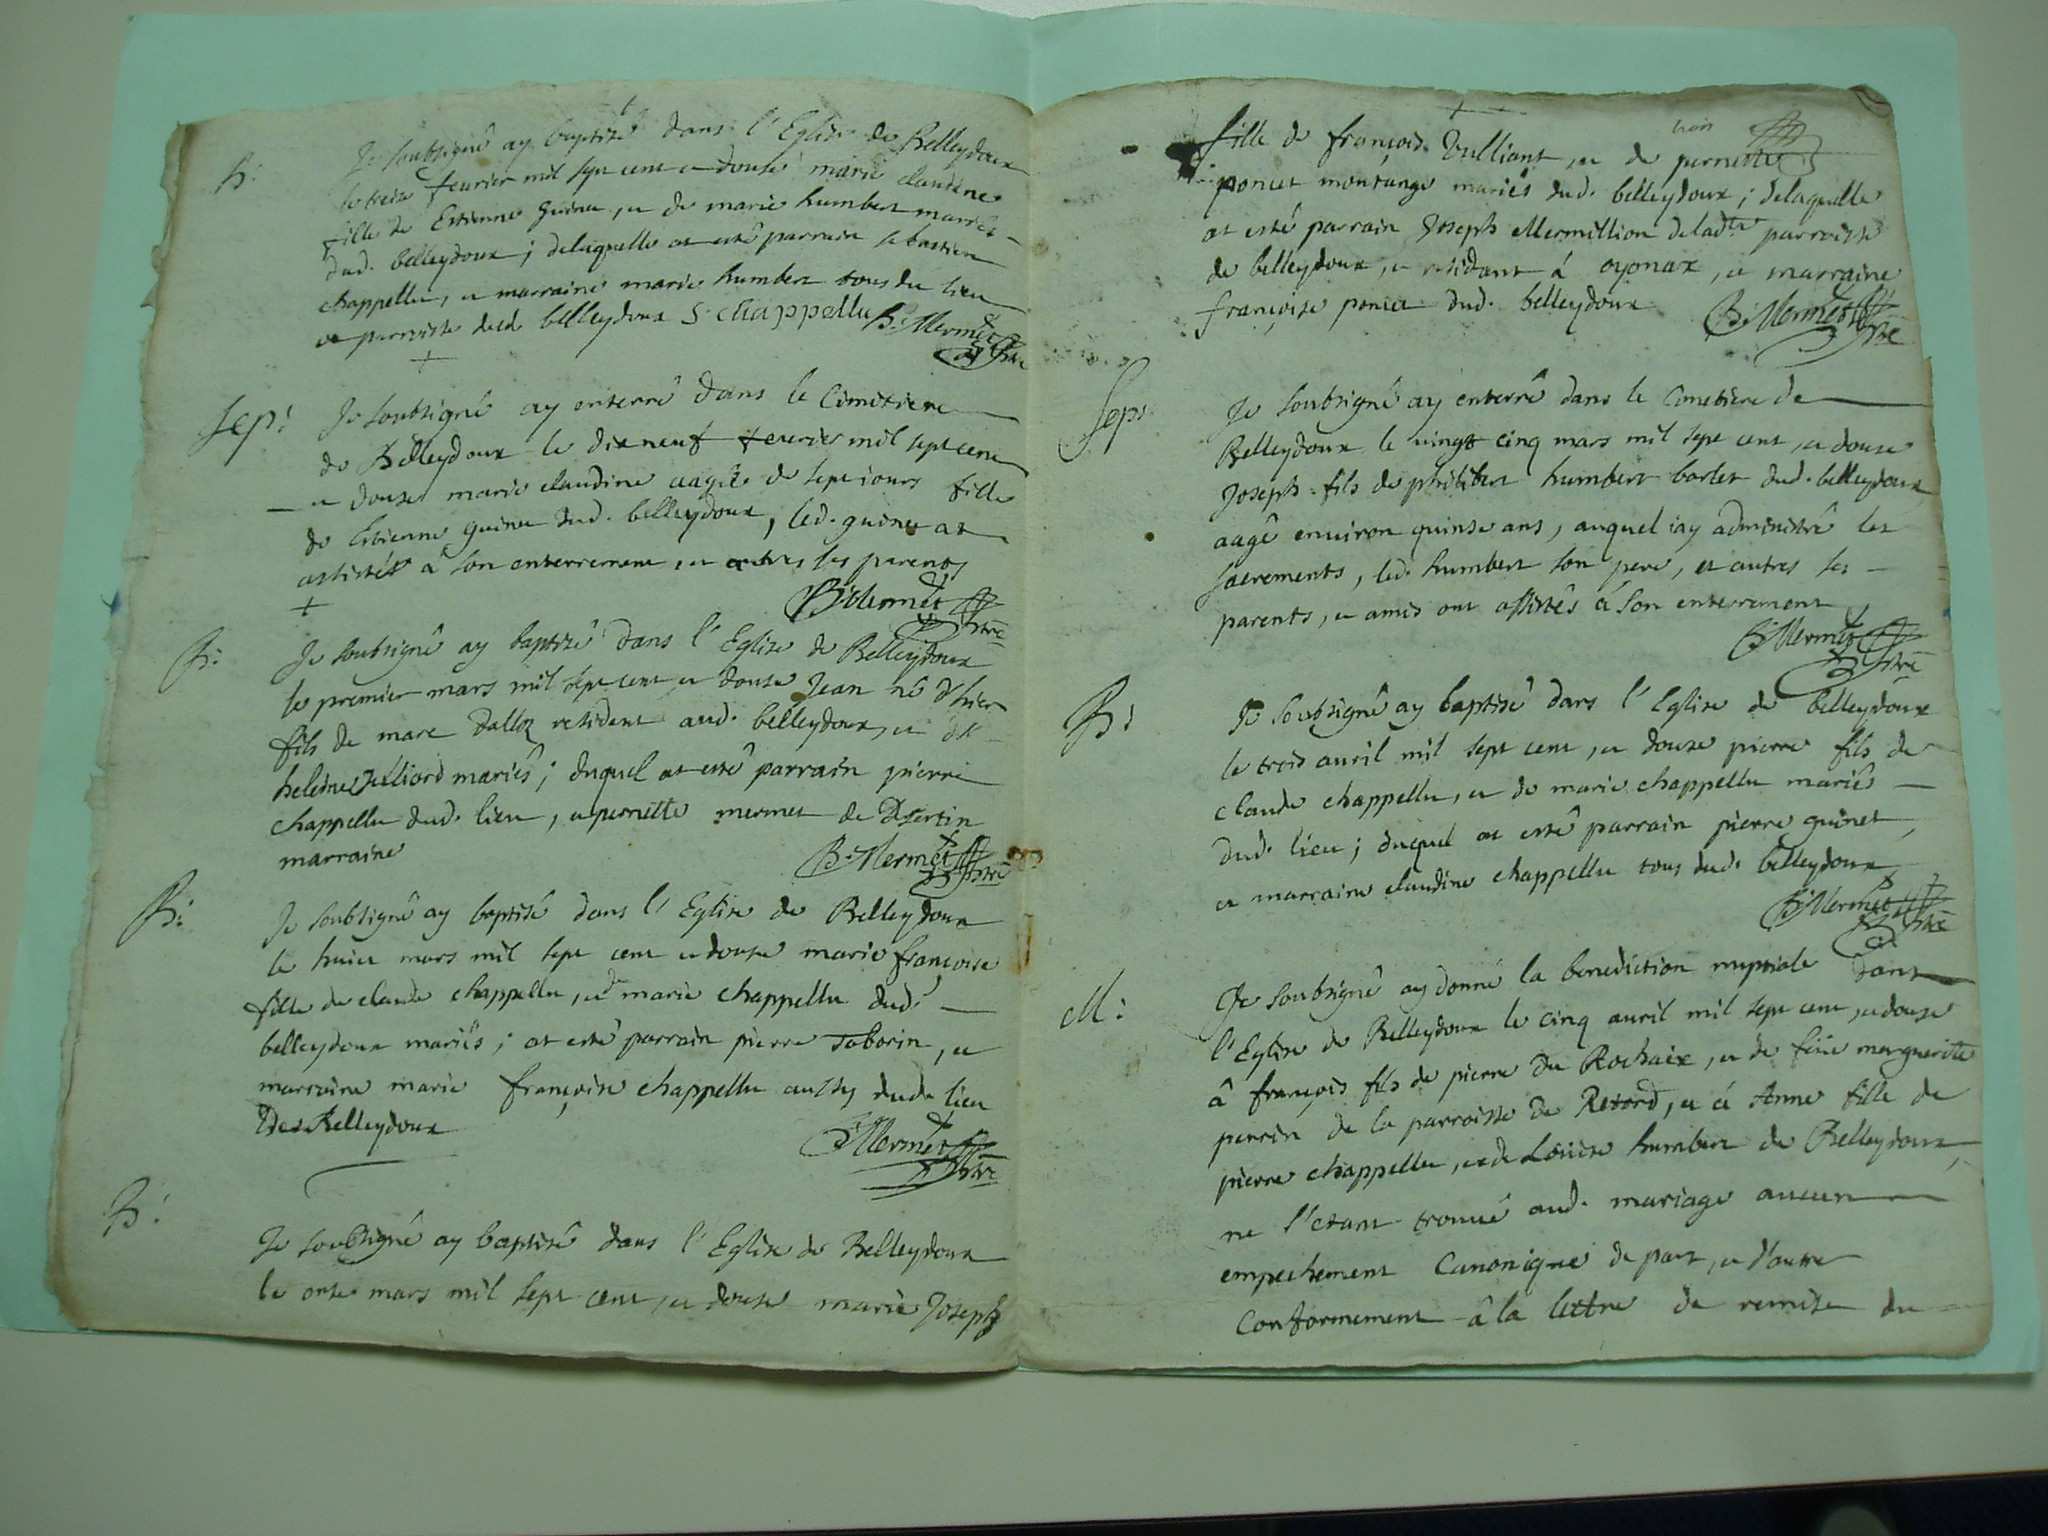 B:
Je soubsigné ay baptisé dans l'Eglise de Belleydoux
le treze feurier mil sept cent et douse marie claudine
fille de Estienne guinet, et de marie humbert mariés
dud. belleydoux; delaquelle at esté parrain sebastien
chappellu, et marraine marie humbert tous du lieu
et parroisse dud. belleydoux S chappellu B: Mermet
ptre
Sep:
Je soubsigné ay enterré dans le Cimitiere
de Belleydoux le dixneuf feurier mil sept cent
et douse marie claudine aagée de sept iours fille
de Estienne guinet dud. belleydoux, led. guinet at
assisté à son enterrement et autres ses parents
B: Mermet
ptre
B:
Je soubsigné ay baptisé dans l'Eglise de Belleydoux
le premier mars mil sept cent et douse Jean né d'hier
fils de marc dalloz resident aud. belleydoux, et de
heleine Julliard mariés; duquel at esté parrain pierre
chappellu dud. lieu, et pernette mermet de Desertin
marraine
B: Mermet
ptre
B:
Je soubsigné ay baptisé dans l'Eglise de Belleydoux
le huict mars mil sept cent et douse marie françoise
fille de claude chappellu, et de marie chappellu dud.
belleydoux mariés; at esté parrain pierre Taborin, et
marraine marie françoise chappellu aussy dud. lieu
de Belleydoux
B: Mermet
ptre
B:
Je soubsigné ay baptisé dans l'Eglise de Belleydoux
le onse mars mil sept cent, et douse marie Joseph
trois
fille de françois Vulliant, et de pernette
poncet montange mariés dud. belleydoux; delaquelle
at esté parrain Joseph Mermillion deladte parroisse
de belleydoux, et residant à oyonax, et marraine
françoise poncet dud. belleydoux
B: Mermet
ptre
Sep:
Je soubsigné ay enterré dans le Cimetiere de
Belleydoux le vingt cinq mars mil sept cent, et douse
Joseph fils de philibert humbert barlet dud. belleydoux
aagé environ quinse ans, auquel iay administré les
sacrements, led. humbert son pere, et autres ses
parents, et amis ont assistés à son enterrement
B: Mermet
ptre
B:
Je soubsigné ay baptisé dans l'Eglise de belleydoux
le trois auril mil sept cent, et douse pierre fils de
claude chappellu, et de marie chappellu mariés
dud. lieu; duquel at esté parrain pierre guinet,
et marraine claudine chappellu tous dud. belleydoux
B: Mermet
ptre
M:
Je soubsigné ay donné la benediction nuptiale dans
l'Eglise de Belleydoux le cinq auril mil sept cent, et douse
â françois fils de pierre du Rochaix, et de feüe marguerite
perrin de la parroisse de Retord, et à Anne fille de
pierre chappellu, et de Louise humbert de Belleydoux,
ne s'etant trouué aud. mariage aucun
empechement Canonique de part, et d'autre
Conformement â la lettre de remise du